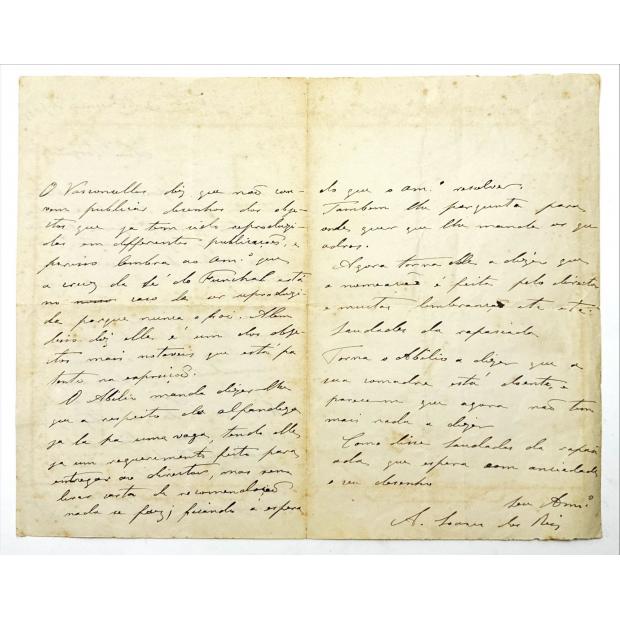 O Vasconcellos diz que não con-
vem publicar desenhos dos obje-
ctos que ja tem sido reproduzi-
dos em differentes publicações, e
por isso lembra ao am.º que
a cruz da Sé do Funchal está
no caso de ser reproduzi-
da porque nunca o foi. Alem
disso diz elle, é um dos obje-
tos mais notaveis que está pa
tente na exposição.
O Abilio manda dizer-lhe
que a respeito da alfandega
ja la ha uma vaga, tendo elle
ja um requerimento feito para
entregar ao director, mas sem
levar carta de recommendação
nada se faz; ficando á espera
do que o am.º resolver.
Tambem lhe pergunta para
onde quer que lhe mande os qu
adros.
Agora torna elle a dizer que
a nomeação é feita pelo director
e muitas lembranças etc etc.
Saudades da rapaziada
Torna o Abilio a dizer que a
sua comadre está doente, e
parece-me que agora não tem
mais nada a dizer
Como disse saudades da rapazi
ada, que espera com anciedade
o seu desenho
Seu Am.º
A. Soares dos Reis